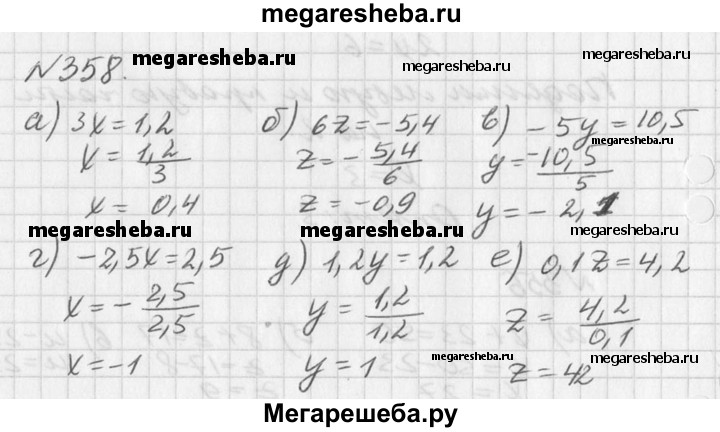 megaresheba.ru
№358. megaresheba.ru megaresheba.ru
а) 3x = 1,2 б) 6z = -5,4 в) -5y = 10,5
x = 1,2/3 z = - 5,4/6 y = -10,5/5
megaresheba.ru
x = 0,4 z = -0,9 y = -2,1
megaresheba.ru megaresheba.ru megaresheba.ru
г) -2,5x = 2,5 д) 1,2y = 1,2 е) 0,1z = 4,2
x = - 2,5/2,5 y = 1,2/1,2 z = 4,2/0,1
x = -1 y = 1 z = 42
megaresheba.ru megaresheba.ru
Мегарешеба.ру